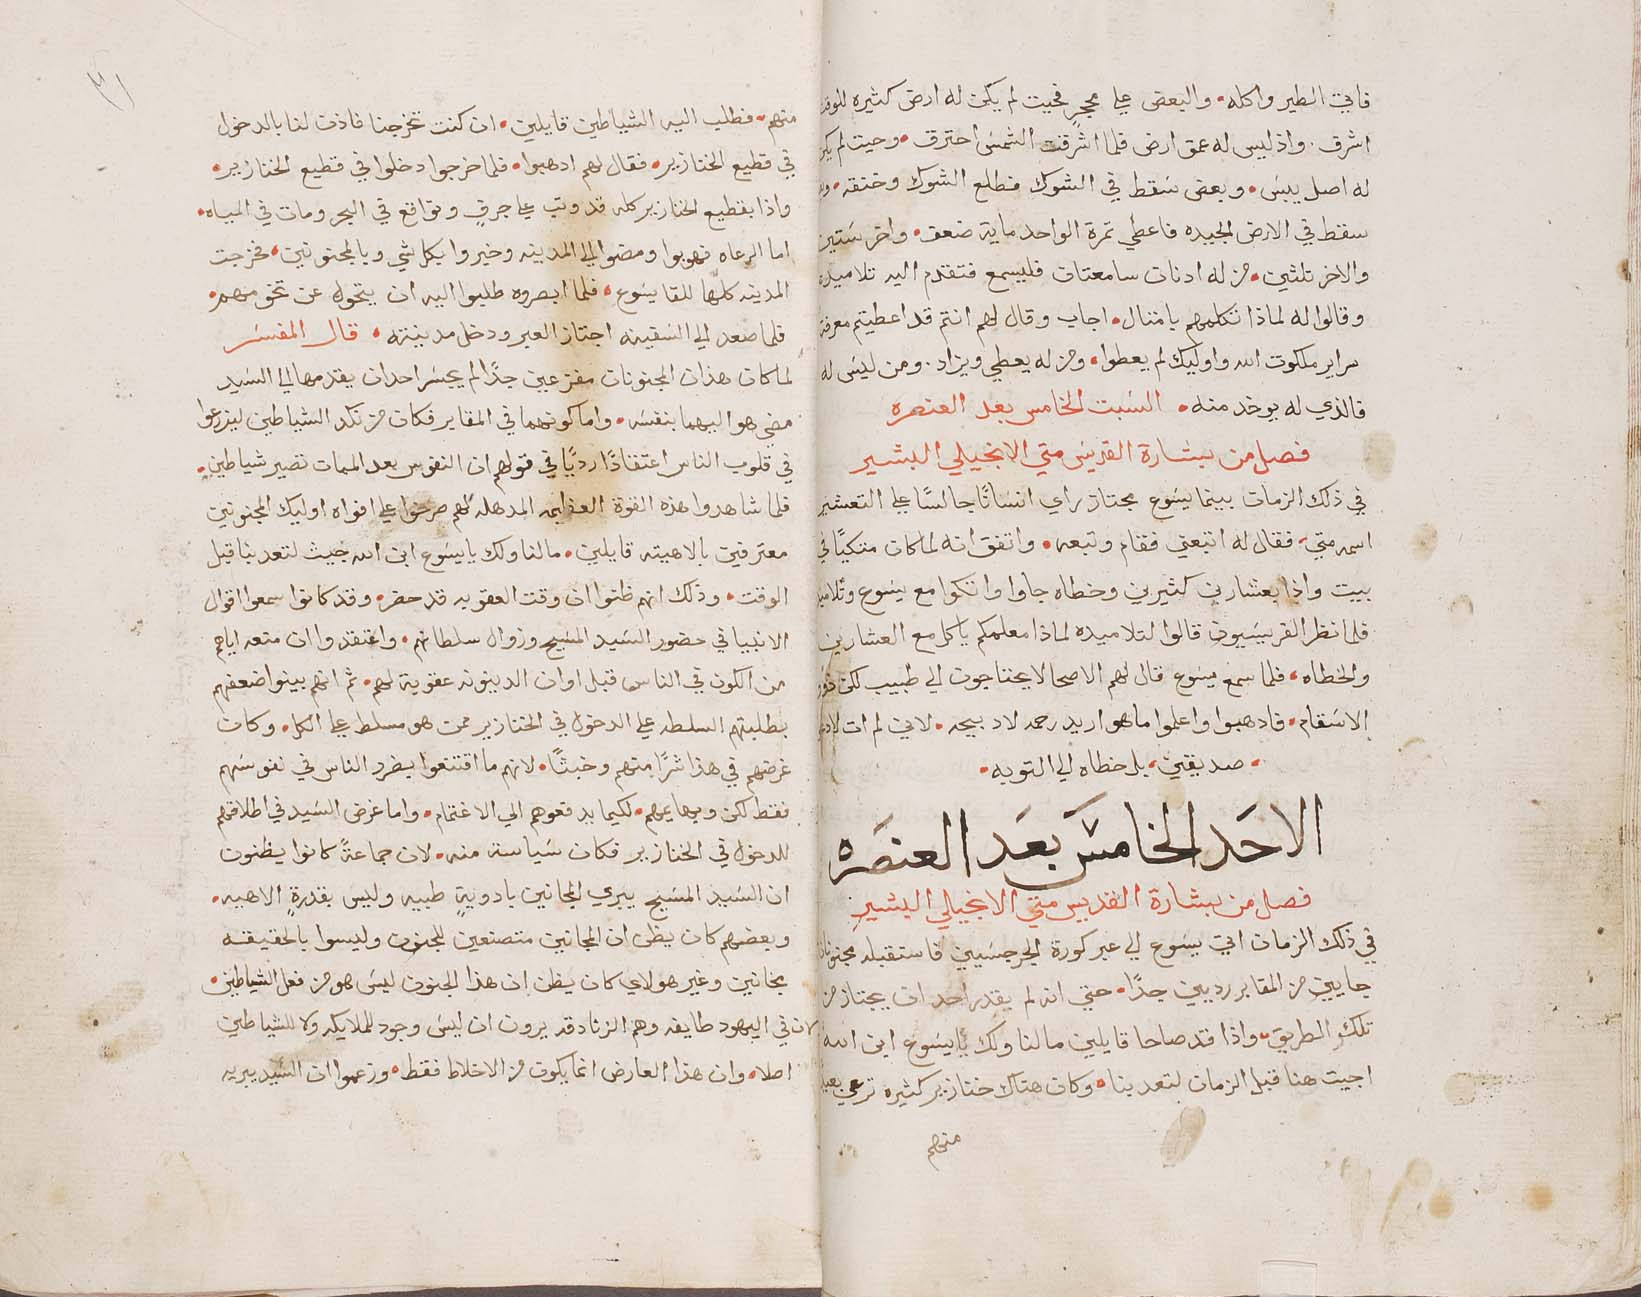 فاتي الطير واكله. والبعض علي محجرٍ فحيت لم يكن له ارض كثيره للوقت
اشرق. واذ ليس له عمق ارض فلما اشرقت الشمس احترق. وحيت لم يكن
له اصل يبس. وبعض سقط في الشوك فطلع الشوك وخنقه.
سقط في الارض الجيده فاعطي ثمرة الواحد مايه ضعف. واخر ستين
والاخر تلثين. من له ادنات سامعتات فليسمع فتقدم اليه تلاميده
وقالوا له لماذا تكلمهم بامتال. اجاب وقال لهم انتم قد اعطيتم معرفة
سراير ملكوت الله واوليك لم يعطوا. ومن له يعطي ويزاد. ومن ليس له
فالذي له يوخد منه. السبت الخامس بعد العنصره
فصل من بشارة القديس متي الانجيلي البشير
في ذلك الزمان بينما يسوع مجتاز راي انسانًا جالسًا علي التعشير
اسمه متي. فقال له اتبعني فقام وتبعه. واتفق انه لما كان متكيًا في
بيت واذا بعشارين كثيرين وخطاه جاوا واتكوا مع يسوع وتلاميده
فلما نظر الفريسيون قالوا لتلاميده لماذا معلمكم ياكل مع العشارين
والخطاه. فلما سمع يسوع قال لهم الاصحا لا يحتاجون الي طبيب لكن ذوو
الاسقام. فادهبوا واعلموا ما هو اريد رحمه لا دبيحه. لاني لم ات لادعو
صديقين. بل خطاه الي التوبه.
الاحد الخامس بعد العنصره
فصل من بشارة القديس متي الانجيلي البشير
في ذلك الزمان اتي يسوع الي عبر كورة الجرجسيين فاستقبله مجنونان
جايين من المقابر رديين جدًا. حتي انه لم يقدر احد ان يجتاز من
تلك الطريق. واذا قد صاحا قايلين ما لنا ولك يا يسوع ابن الله
اجيت هنا قبل الزمان لتعدبنا. وكان هناك خنازير كثيره ترعي بعيد
منهم
منهم. فطلب اليه الشياطين قايلين. ان كنت تخرجنا فاذن لنا بالدخول
في قطيع الخنازير. فقال لهم ادهبوا. فلما خرجوا دخلوا في قطيع الخنازير.
واذا بقطيع الخنازير كله قد وثب علي جرفٍ وتواقع في البحر ومات في المياه.
اما الرعاه فهربوا ومضوا الي المدينه وخبروا بكل شي وبالمجنونين. فخرجت
المدينه كلها للقا يسوع. فلما ابصروه طلبوا اليه ان يتحول عن تخومهم.
فلما صعد الي السفينه اجتاز العبر ودخل مدينته. قال المفسر
لما كان هذان المجنونان مفزعين جدًا لم يجسر احد ان يقدمهما الي السيد
مضي هو اليهما بنفسه. واما كونهما في المقابر فكان من نكد الشياطين ليزرعوا
في قلوب الناس اعتقادًا رديًا في قولهم ان النفوس بعد الممات تصير شياطين.
فلما شاهدوا هذه القوة المدهله لهم صرخوا علي افواه اوليك المجنونين
معترفين بالاهيته قايلين. ما لنا ولك يا يسوع ابن الله جيت لتعدبنا قبل
الوقت. وذلك انهم ظنوا ان وقت العقوبه قد حضر. وقد كانوا سمعوا اقوال
الانبيا في حضور السيد المسيح وزوال سلطانهم. واعتقدوا ان منعه اياهم
من الكون في الناس قبل اوان الدينونه عقوبة لهم. ثم انهم بينوا ضعفهم
بطلبتهم السلطه علي الدخول في الخنازير ممن هو مسلط علي الكل. وكان
غرضهم في هذا شرًا منهم وخبثًا. لانهم ما اقتنعوا بضرر الناس في نفوسهم
فقط لكن وبهايمهم. لكيما يدفعوهم الي الاغتمام. واما غرض السيد في اطلاقهم
للدخول في الخنازير فكان سياسة منه. لان جماعةً كانوا يظنون
ان السيد المسيح يبري المجانين بادويةٍ طبيه وليس بقدرةٍ الاهيه.
وبعضهم كان يظن ان المجانين متصنعين للجنون وليسوا بالحقيقه
مجانين وغير هولاي كان يظن ان هذا الجنون ليس هو من فعل الشياطين.
لان في اليهود طايفه وهم الزنادقه يرون ان ليس وجود للملايكه ولا للشياطين
اصلا. وان هذا العارض انما يكون من الاخلاط فقط. وزعموا ان السيد يبريه